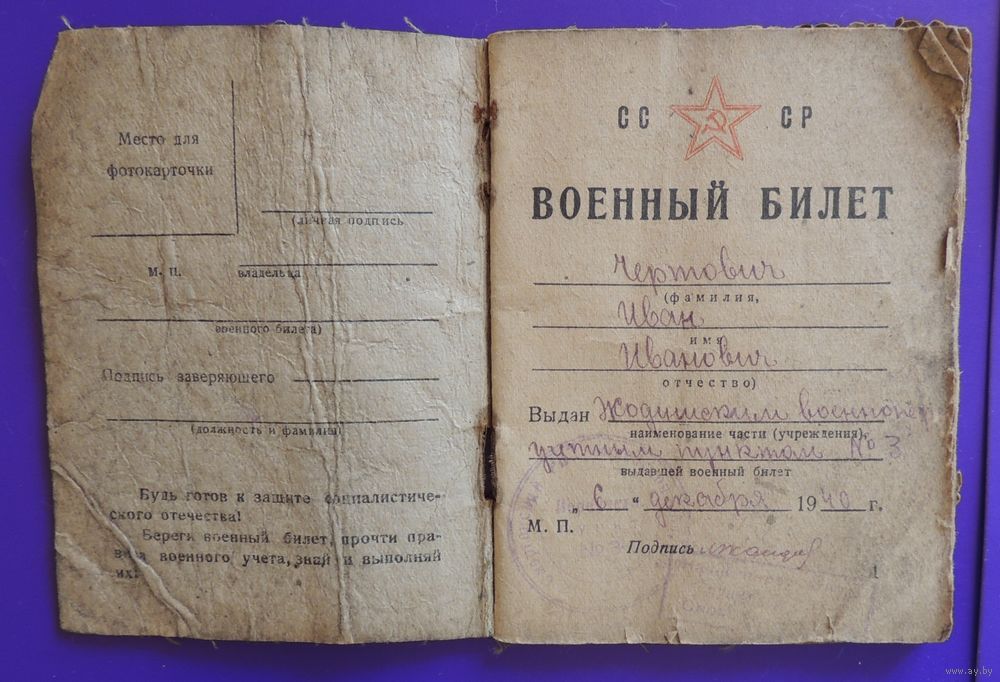 Место для
фотокарточки
(личная подпись
М. П.
владельца
военного билета)
Подпись заверяющего
(должность и фамилия)
Будь готов к защите социалистиче-
ского отечества!
Береги военный билет, прочти пра-
вила военного учета, знай и выполняй
их.
СС СР
ВОЕННЫЙ БИЛЕТ
Чертович
(фамилия,
Иван
имя
Иванович
отчество)
Выдан Жодишским военно
наименование части (учреждения),
учетным пунктом № 3
выдавшей военный билет
„6“ декабря 1940 г.
М. П.
Подпись
1
www.ay.by